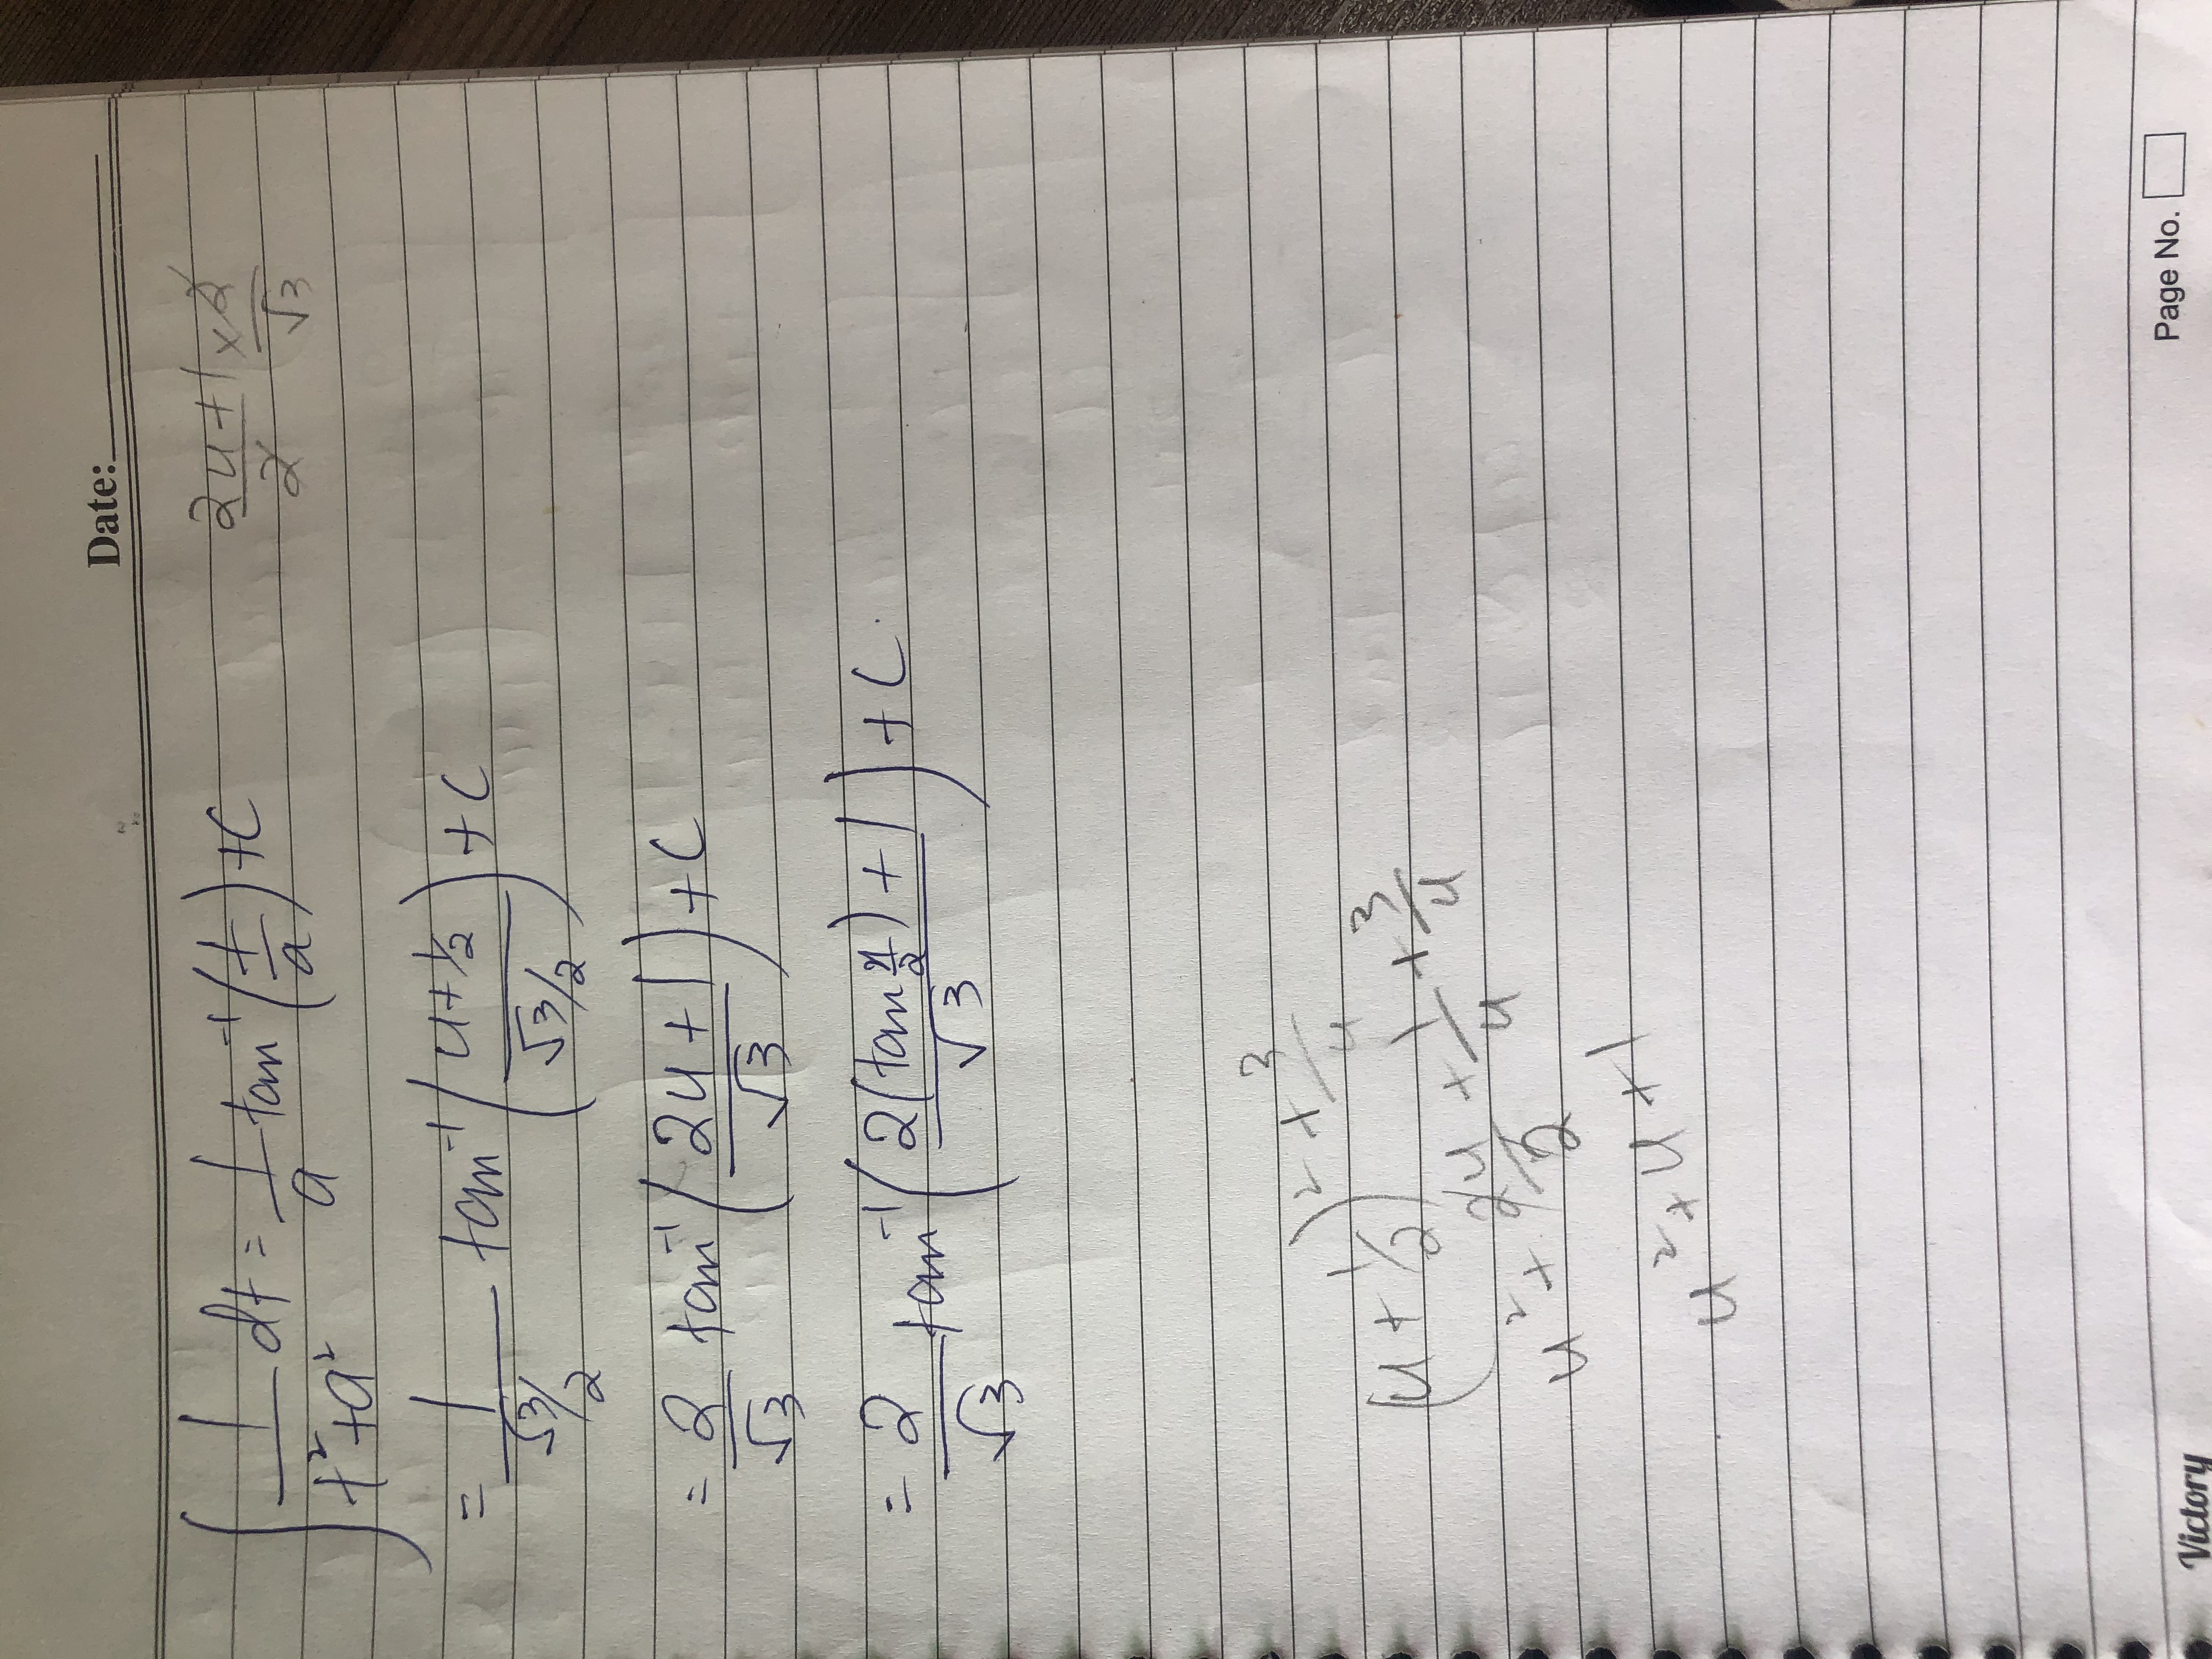 Date:
∫ 1/(t²+a²) dt = 1/a tan⁻¹(t/a) + C
(2u+1)/2 × 2/√3
= 1/(√3/2) tan⁻¹((u+1/2)/(√3/2)) + C
= 2/√3 tan⁻¹((2u+1)/√3) + C
= 2/√3 tan⁻¹((2(tan x/2)+1)/√3) + C.
(u + 1/2)² + 3/4
u² + 2u/2 + 1/4 + 3/4
u² + u + 1
Page No.
Victory